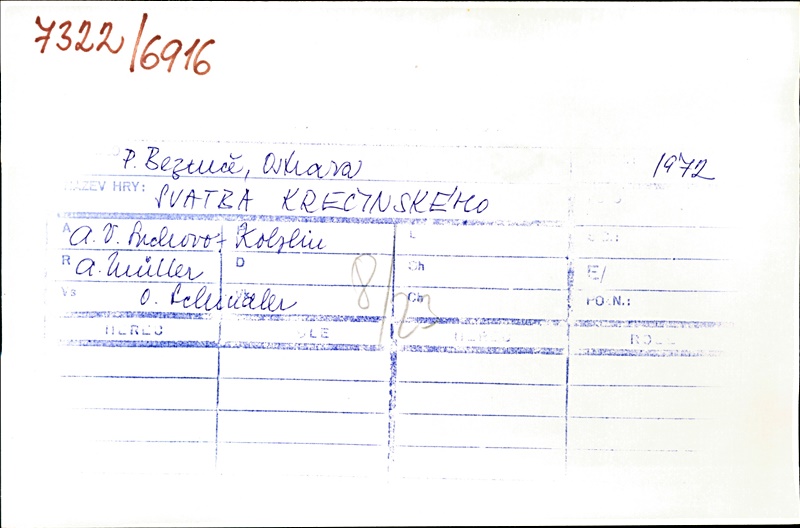 7322/6916
P. Bezruč, Ostrava 1972
NÁZEV HRY: SVATBA KREČINSKÉHO
A A. V. Suchovo- Kobylin L
R A. Müller D Sh E/
Vs O. Schindler 8/23 Ch POZN.:
HEREC ROLE HEREC ROLE